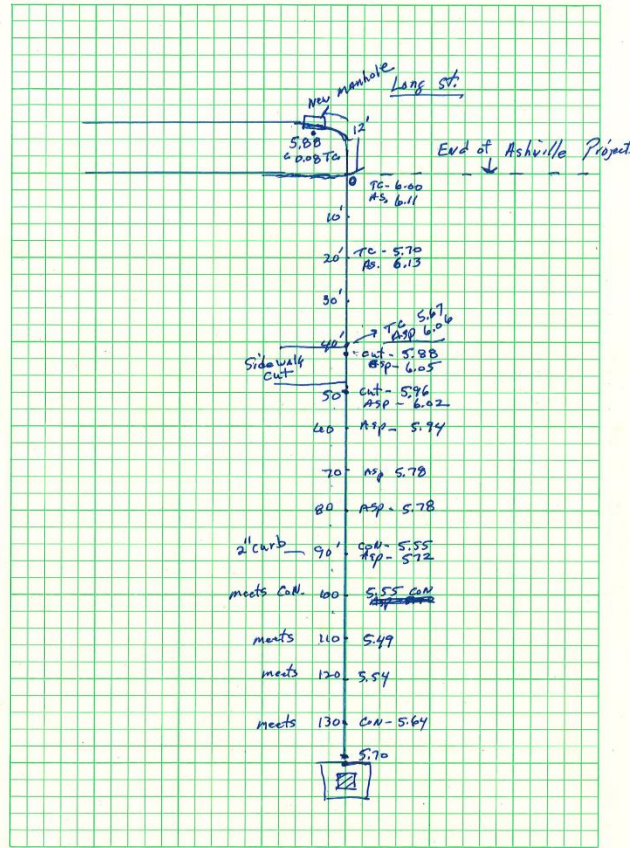 New Manhole
Long St.
12'
5.88
0.08 TC
End of Ashville Project
0 TC- 6.00
AS. 6.11
10'
20' TC - 5.70
AS. 6.13
30'
40' TC 5.67
Asp 6.06
Sidewalk
cut
cut - 5.88
Asp - 6.05
50 cut - 5.96
Asp - 6.02
60 Asp - 5.94
70 Asp 5.78
80 Asp - 5.78
2" curb 90' CON - 5.55
Asp - 572
meets CoN. 100 5.55 CoN
meets 110 5.49
meets 120 5.54
meets 130 CoN - 5.64
5.70